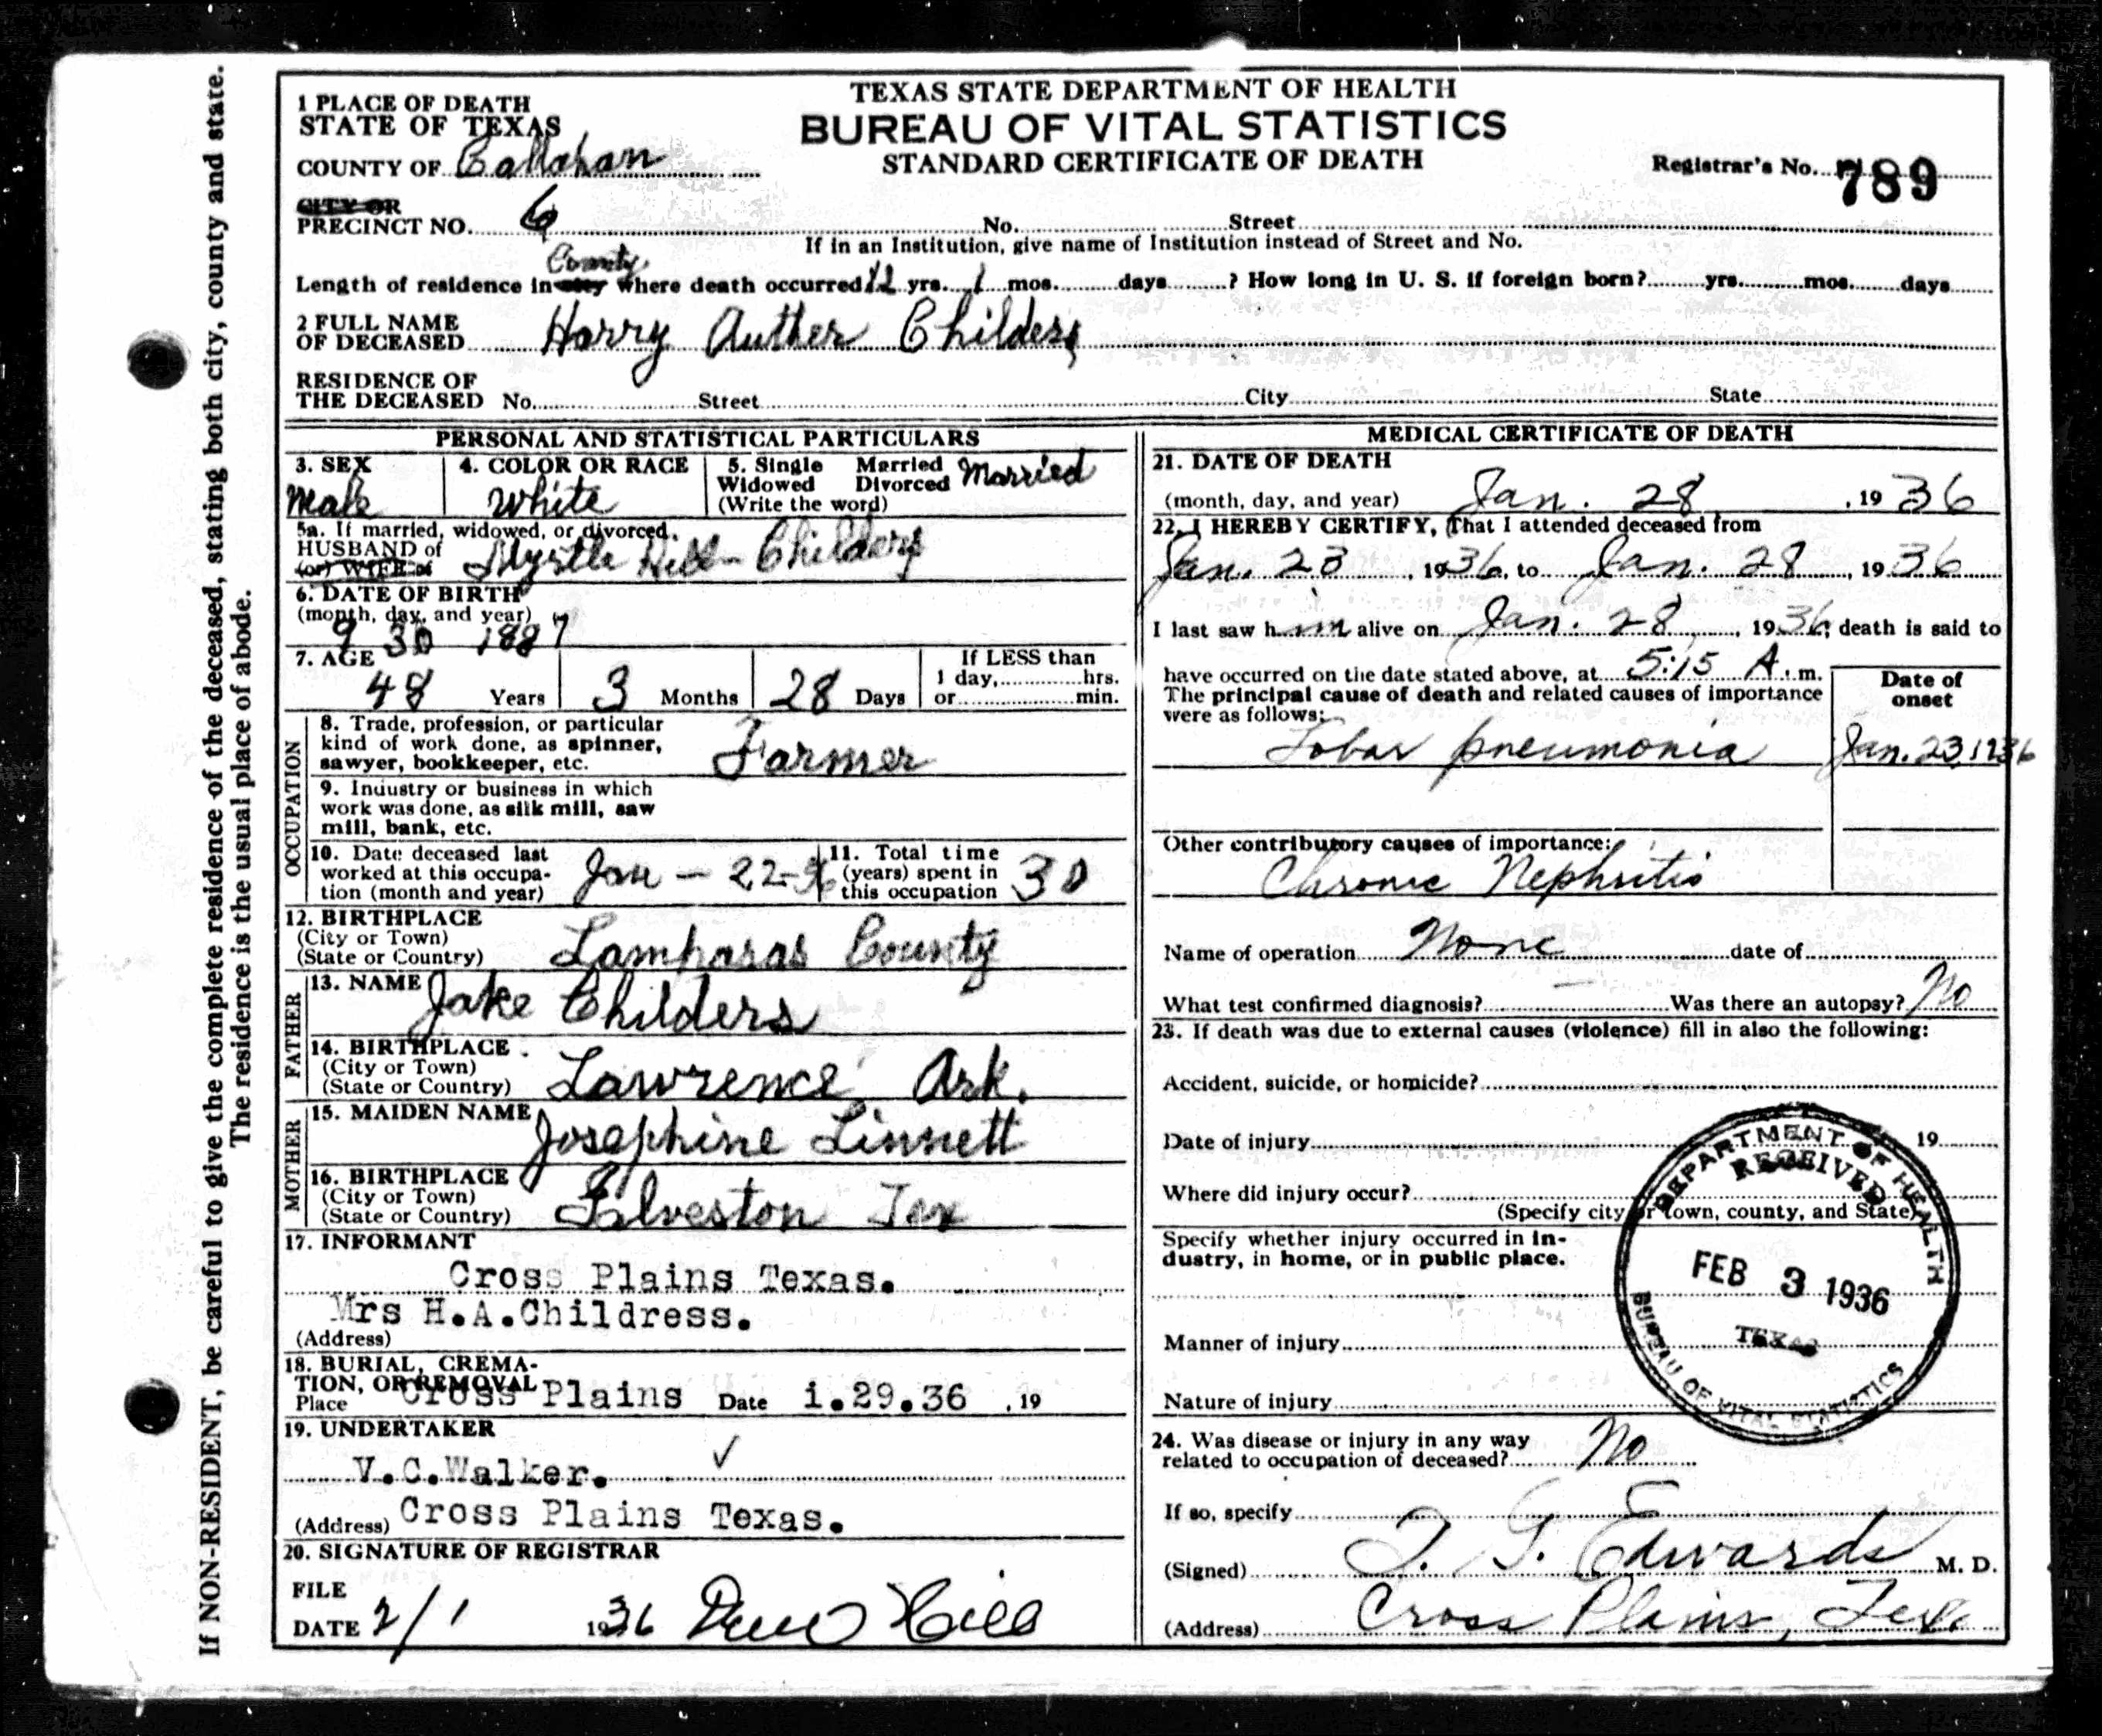 If NON-RESIDENT, be careful to give the complete residence of the deceased, stating both city, county and state.
The residence is the usual place of abode.
TEXAS STATE DEPARTMENT OF HEALTH
BUREAU OF VITAL STATISTICS
STANDARD CERTIFICATE OF DEATH
Registrar's No. 789
1 PLACE OF DEATH
STATE OF TEXAS
COUNTY OF Callahan
CITY OR
PRECINCT NO. 6 No. Street
If in an Institution, give name of Institution instead of Street and No.
County
Length of residence in city where death occurred 12 yrs. 1 mos. days ? How long in U. S. if foreign born? yrs. mos. days
2 FULL NAME
OF DECEASED Harry Auther Childers
RESIDENCE OF
THE DECEASED No. Street City State
PERSONAL AND STATISTICAL PARTICULARS
3. SEX
Male
4. COLOR OR RACE
White
5. Single Married
Widowed Divorced
(Write the word)
Married
5a. If married, widowed, or divorced.
HUSBAND of
(or) WIFE of
Myrtle Hill-Childers
6. DATE OF BIRTH
(month, day, and year)
9 30 1887
7. AGE
48 Years 3 Months 28 Days
If LESS than
1 day, hrs.
or min.
OCCUPATION
8. Trade, profession, or particular
kind of work done, as spinner,
sawyer, bookkeeper, etc.
Farmer
9. Industry or business in which
work was done, as silk mill, saw
mill, bank, etc.
10. Date deceased last
worked at this occupa-
tion (month and year)
Jan - 22-36
11. Total time
(years) spent in
this occupation
30
12. BIRTHPLACE
(City or Town)
(State or Country)
Lampasas County
FATHER
13. NAME Jake Childers
14. BIRTHPLACE
(City or Town)
(State or Country)
Lawrence Ark.
MOTHER
15. MAIDEN NAME Josephine Linnett
16. BIRTHPLACE
(City or Town)
(State or Country)
Galveston Tex
17. INFORMANT
Cross Plains Texas.
Mrs H.A.Childress.
(Address)
18. BURIAL, CREMA-
TION, OR REMOVAL
Place Cross Plains Date 1.29.36 , 19
19. UNDERTAKER
V.C.Walker. ✓
(Address) Cross Plains Texas.
20. SIGNATURE OF REGISTRAR
FILE
DATE 2/1 1936 Hill
MEDICAL CERTIFICATE OF DEATH
21. DATE OF DEATH
(month, day, and year) Jan. 28 , 19 36
22. I HEREBY CERTIFY, That I attended deceased from
Jan. 23 , 1936, to Jan. 28 , 19 36
I last saw h im alive on Jan. 28 , 1936; death is said to
have occurred on the date stated above, at 5:15 A. m.
The principal cause of death and related causes of importance
were as follows:
Date of
onset
Lobar pneumonia Jan. 23, 1936
Other contributory causes of importance:
Chronic Nephritis
Name of operation None date of
What test confirmed diagnosis? — Was there an autopsy? No
23. If death was due to external causes (violence) fill in also the following:
Accident, suicide, or homicide?
Date of injury 19
Where did injury occur?
(Specify city or town, county, and State)
Specify whether injury occurred in in-
dustry, in home, or in public place.
Manner of injury
Nature of injury
DEPARTMENT OF HEALTH
RECEIVED
FEB 3 1936
TEXAS
BUREAU OF VITAL STATISTICS
24. Was disease or injury in any way
related to occupation of deceased? No
If so, specify
(Signed) T. G. Edwards M. D.
(Address) Cross Plains, Tex.